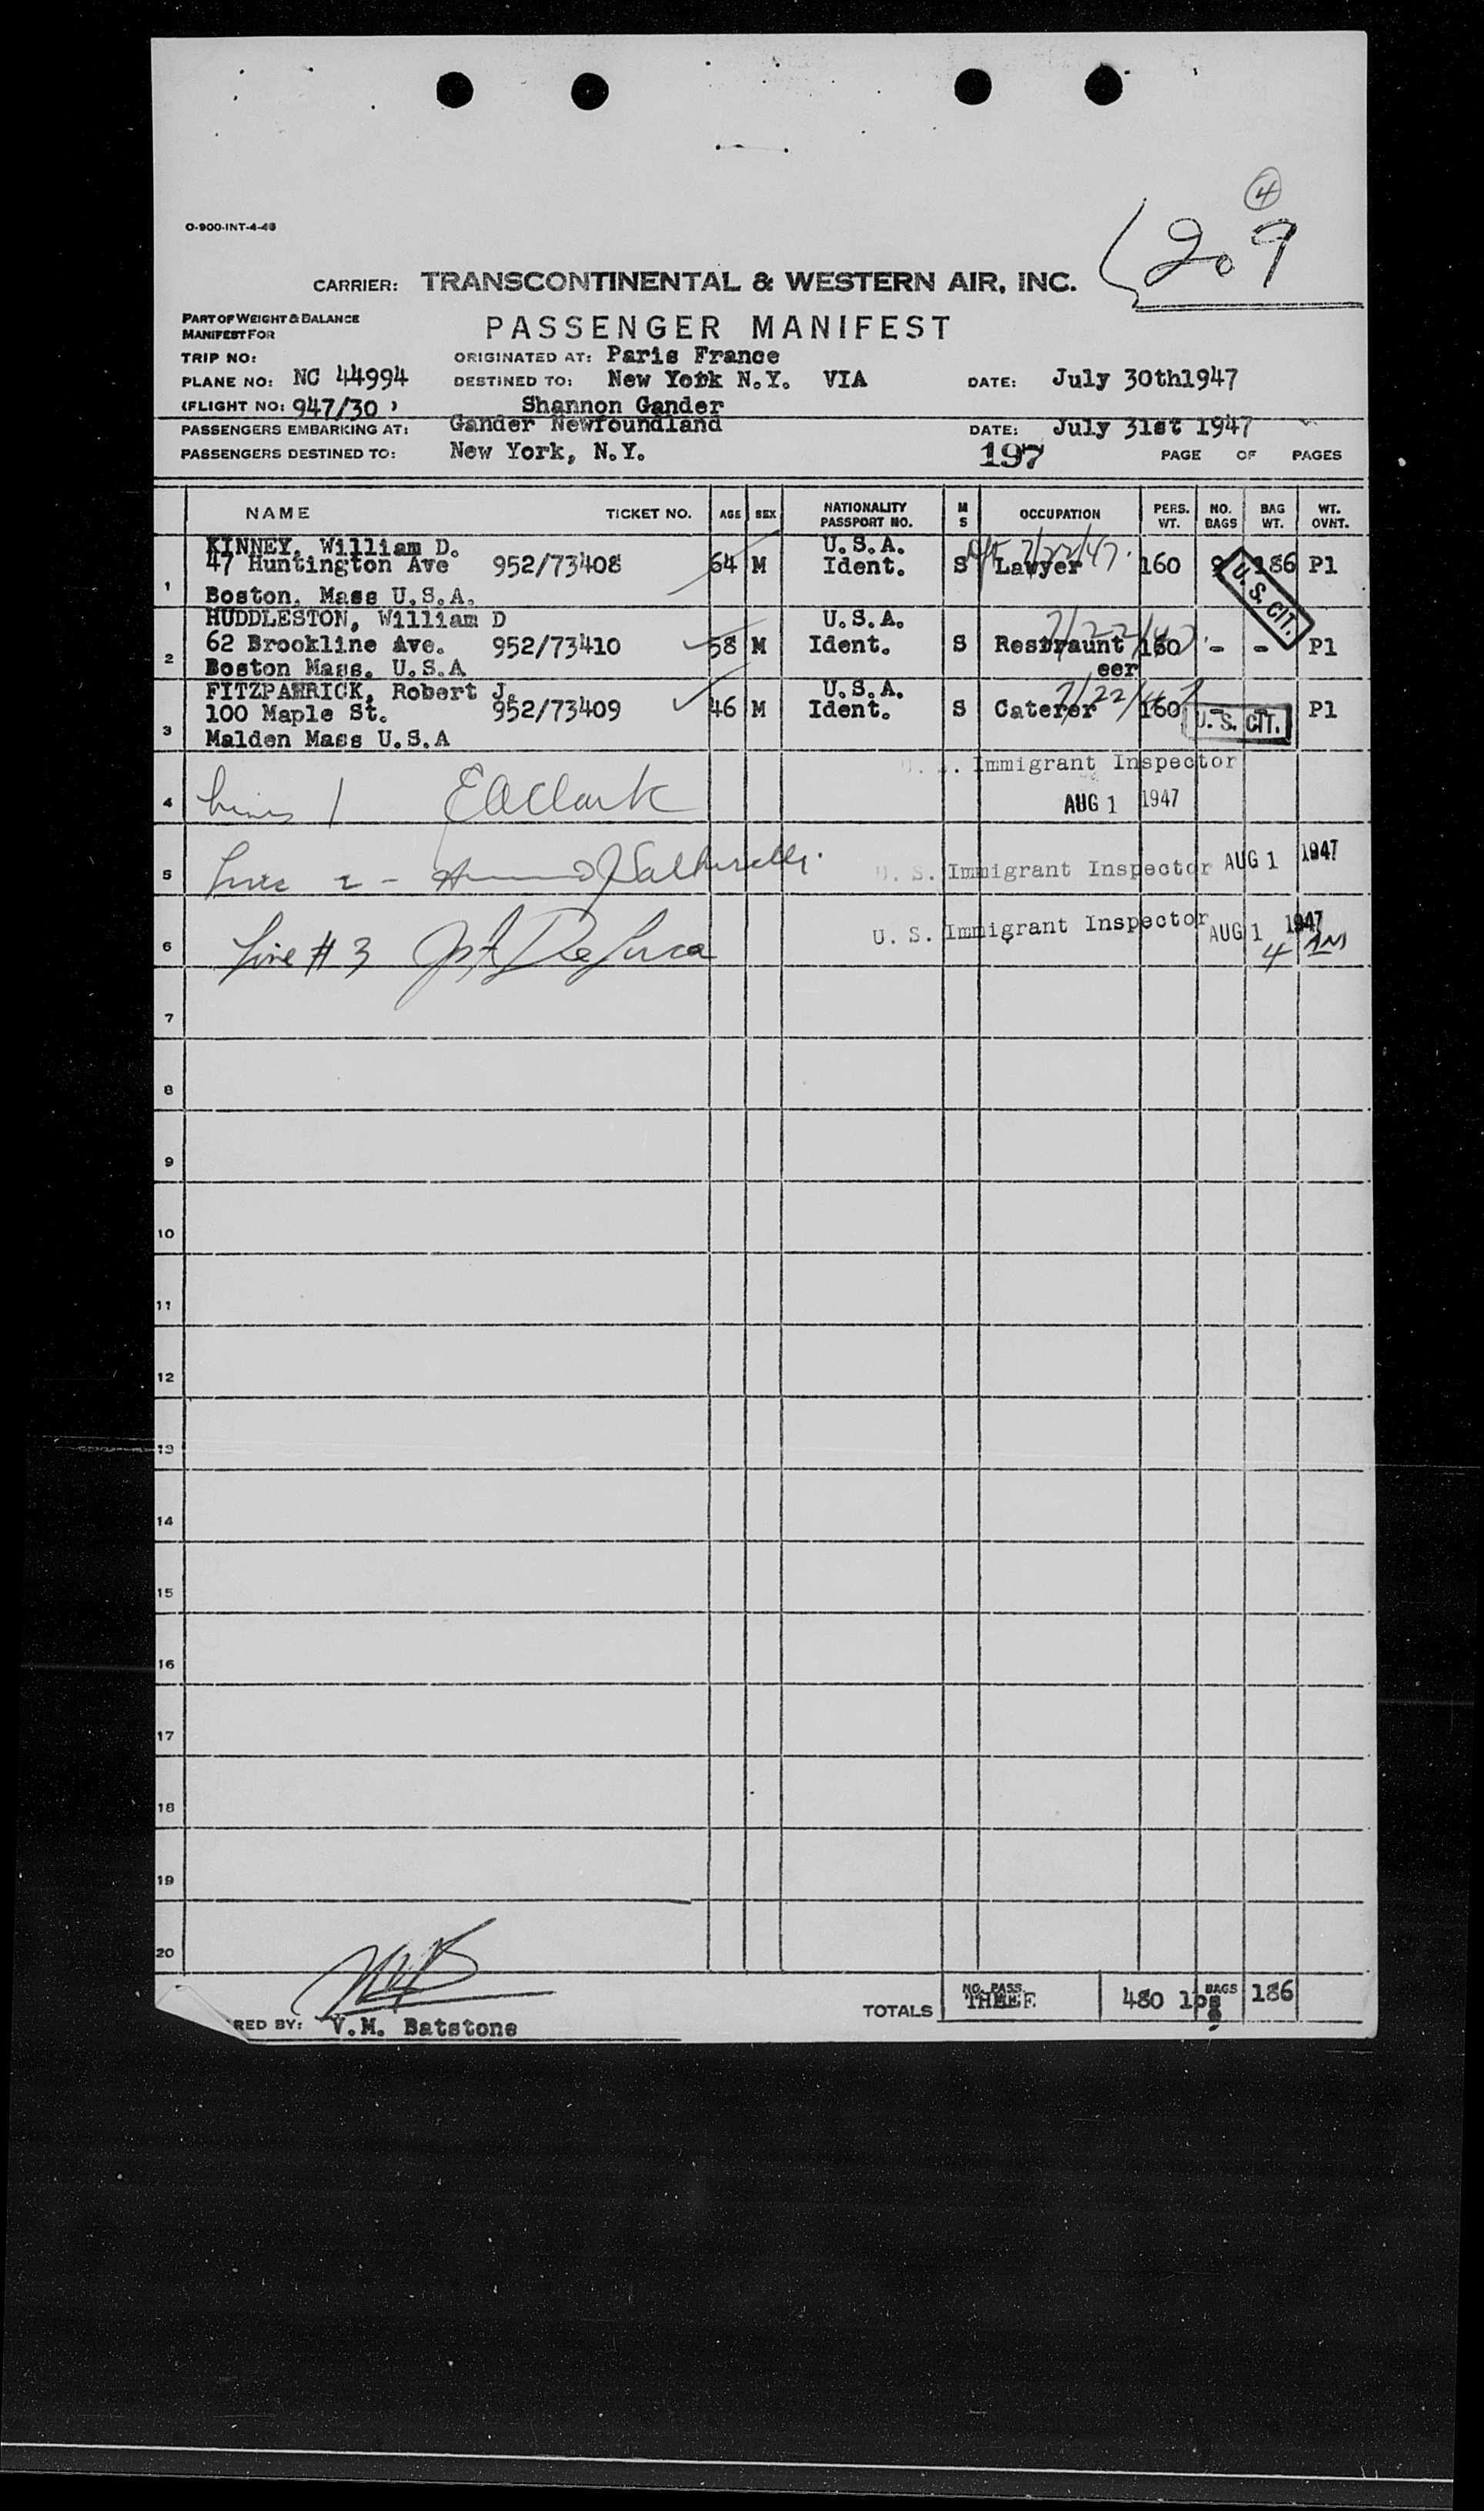 4
209
O-900-INT-4-46
CARRIER: TRANSCONTINENTAL & WESTERN AIR, INC.
PART OF WEIGHT & BALANCE
MANIFEST FOR
PASSENGER MANIFEST
TRIP NO: ORIGINATED AT: Paris France
PLANE NO: NC 44994 DESTINED TO: New York N.Y. VIA DATE: July 30th1947
(FLIGHT NO: 947/30 ) Shannon Gander
PASSENGERS EMBARKING AT: Gander Newfoundland DATE: July 31st 1947
PASSENGERS DESTINED TO: New York, N.Y. 197 PAGE OF PAGES
NAME TICKET NO. AGE SEX NATIONALITY PASSPORT NO. M S OCCUPATION PERS. WT. NO. BAGS BAG WT. WT. OVNT.
KINNEY, William D. U.S.A. 7/22/47.
47 Huntington Ave 952/73408 64 M Ident. S Lawyer 160 186 Pl
1 Boston, Mass U.S.A. U.S. CIT.
HUDDLESTON, William D U.S.A. 7/22/47.
62 Brookline Ave. 952/73410 58 M Ident. S Restraunt 160 - - Pl
2 Boston Mass. U.S.A eer
FITZPARRICK, Robert J. U.S.A. 7/22/47
100 Maple St. 952/73409 46 M Ident. S Caterer 160 - - Pl
3 Malden Mass U.S.A U.S. CIT.
U.S. Immigrant Inspector
4 Lines 1 E A Clark AUG 1 1947
5 Line 2 - U. S. Immigrant Inspector AUG 1 1947
6 Line # 3 De Luca U. S. Immigrant Inspector AUG 1 1947
4 AM
7
8
9
10
11
12
13
14
15
16
17
18
19
20
TOTALS NO. PASS. THREE 480 lbs BAGS 186
RED BY: V.M. Batstone